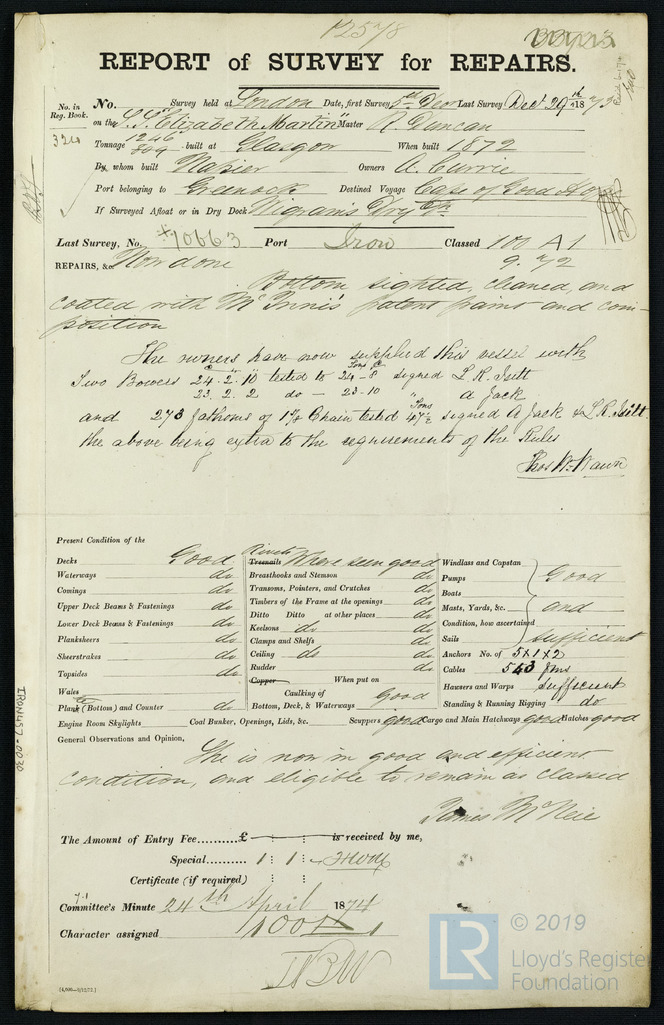 12578
REPORT of SURVEY for REPAIRS.
No. in Reg. Book.
324
No. Survey held at London Date, first Survey 5th Decr Last Survey Decr 29th 1873
on the S.S. "Elizabeth Martin" Master R. Duncan
Tonnage 1246 / 809 built at Glasgow When built 1872
By whom built Napier Owners A. Currie
Port belonging to Greenock Destined Voyage Cape of Good H
If Surveyed Afloat or in Dry Dock Wigram's Dry Dk
Last Survey, No. 70663 Port Iron Classed 100 A1
9. 72
REPAIRS, &c. Now done
Bottom sighted, cleaned, and
coated with McInnis patent paint and com-
position
The owners have now supplied this vessel with
Two Bowers 24. 2. 10 tested to 24-8 signed L R. Isitt
23. 2. 2 do - 23.10 " A Jack
and 273 fathoms of Chain tested Tons 47½ signed A Jack & L R. Isitt
the above being extra to the requirements of the Rules
Present Condition of the
Decks Good
Waterways do
Comings do
Upper Deck Beams & Fastenings do
Lower Deck Beams & Fastenings do
Planksheers do
Sheerstrakes do
Topsides do
Wales
Plank (Bottom) and Counter do
Engine Room Skylights Coal Bunker, Openings, Lids, &c. Scuppers good Cargo and Main Hatchways good Hatches good
Rivets
Treenails Where seen good
Breasthooks and Stemson do
Transoms, Pointers, and Crutches do
Timbers of the Frame at the openings do
Ditto Ditto at other places do
Keelsons do
Clamps and Shelfs do
Ceiling do
Rudder do
Copper When put on
Caulking of
Bottom, Deck, & Waterways Good
Windlass and Capstan
Pumps Good
Boats
Masts, Yards, &c. and
Condition, how ascertained
Sails sufficient
Anchors No. of 5x1x2
Cables 543 fms
Hawsers and Warps sufficient
Standing & Running Rigging do
General Observations and Opinion.
She is now in good and efficient
condition, and eligible to remain as classed
James McNeil
The Amount of Entry Fee..........£ is received by me,
Special.......... 1 : 1 : -
Certificate (if required) : :
Committee's Minute 24th April 1874
Character assigned 100 A 1
[4,000—8/12/72.]
IRON457-0030
© 2019
LR
Lloyd's Register
Foundation